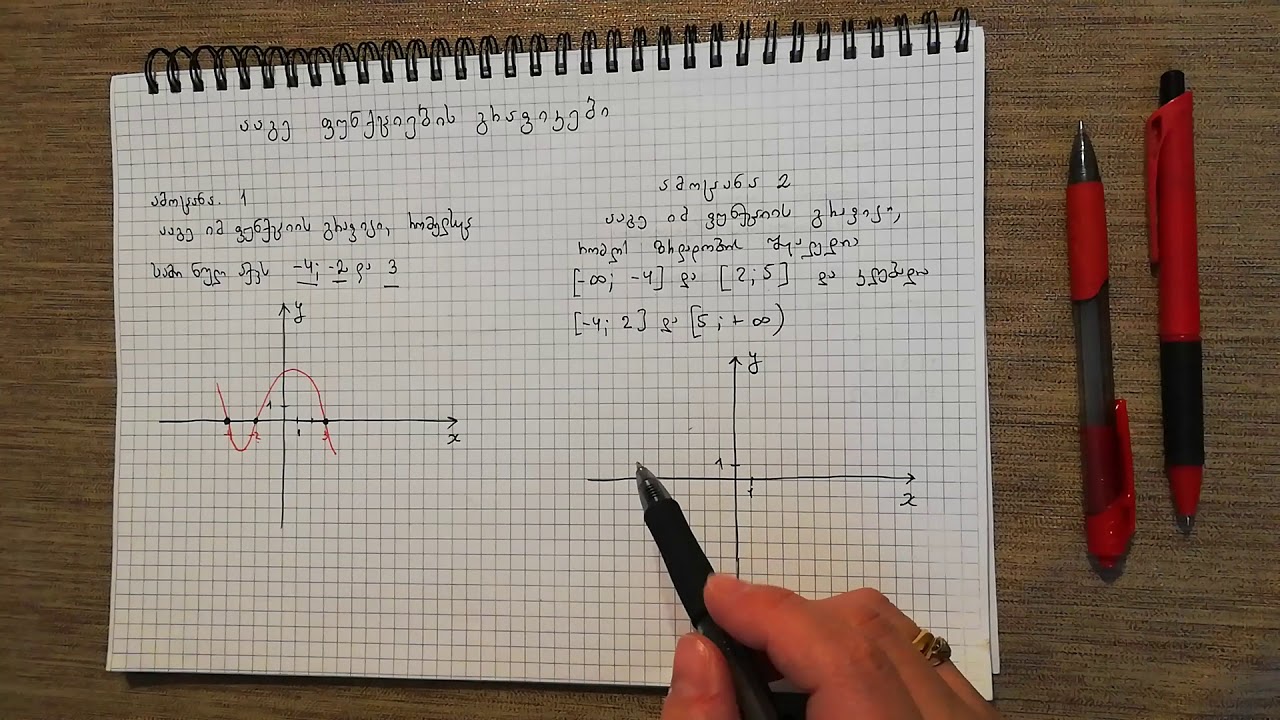 ააგე ფუნქციების გრაფიკები
ამოცანა. 1
ააგე იმ ფუნქციის გრაფიკი, რომელსაც
სამი ნული აქვს -4; -2 და 3
y
1
-2
3
1
x
ამოცანა 2
ააგე იმ ფუნქციის გრაფიკი,
რომლის ზრდადობის შუალედია
[-∞; -4] და [2; 5] და კლებადი
[-4; 2] და [5; +∞)
y
1
1
x